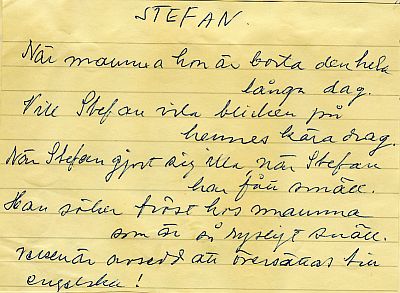 STEFAN.
När mamma hon är borta den hela
långa dag.
Vill Stefan vila blicken på
hennes kära drag.
När Stefan gjort sig illa när Stefan
har fått smäll.
Han söker tröst hos mamma
som är så rysligt snäll.
versen är avsedd att översättas till
engelska!